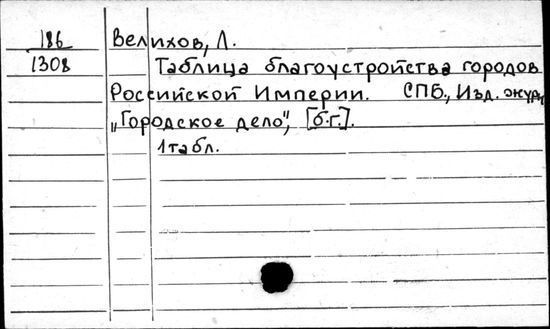 186 Велихов, Л.
1308 Таблица благоустройства городов
Российской Империи. СПБ., Изд. жур.
„Городское дело", [б.г.].
1 табл.